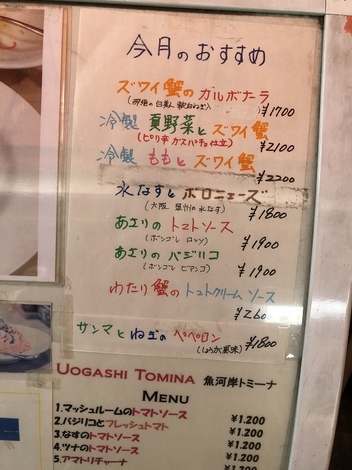 今月のおすすめ
ズワイ蟹のカルボナーラ
¥1700
冷製 夏野菜とズワイ蟹
(ピリ辛ガスパチョ仕立)
¥2100
冷製 ももとズワイ蟹
¥2200
水なすとボロニェーズ
(大阪 泉州の水なす)
¥1800
あさりのトマトソース
(ボンゴレ ロッソ)
¥1900
あさりのバジリコ
(ボンゴレ ビアンコ)
¥1900
わたり蟹のトマトクリームソース
¥260
サンマとねぎのペペロン
(しょうが風味)
¥1800
UOGASHI TOMINA 魚河岸トミーナ
MENU
1.マッシュルームのトマトソース ¥1.200
2.バジリコとフレッシュトマト ¥1.200
3.なすのトマトソース ¥1.200
4.ツナのトマトソース ¥1.200
5.アマトリチャーナ